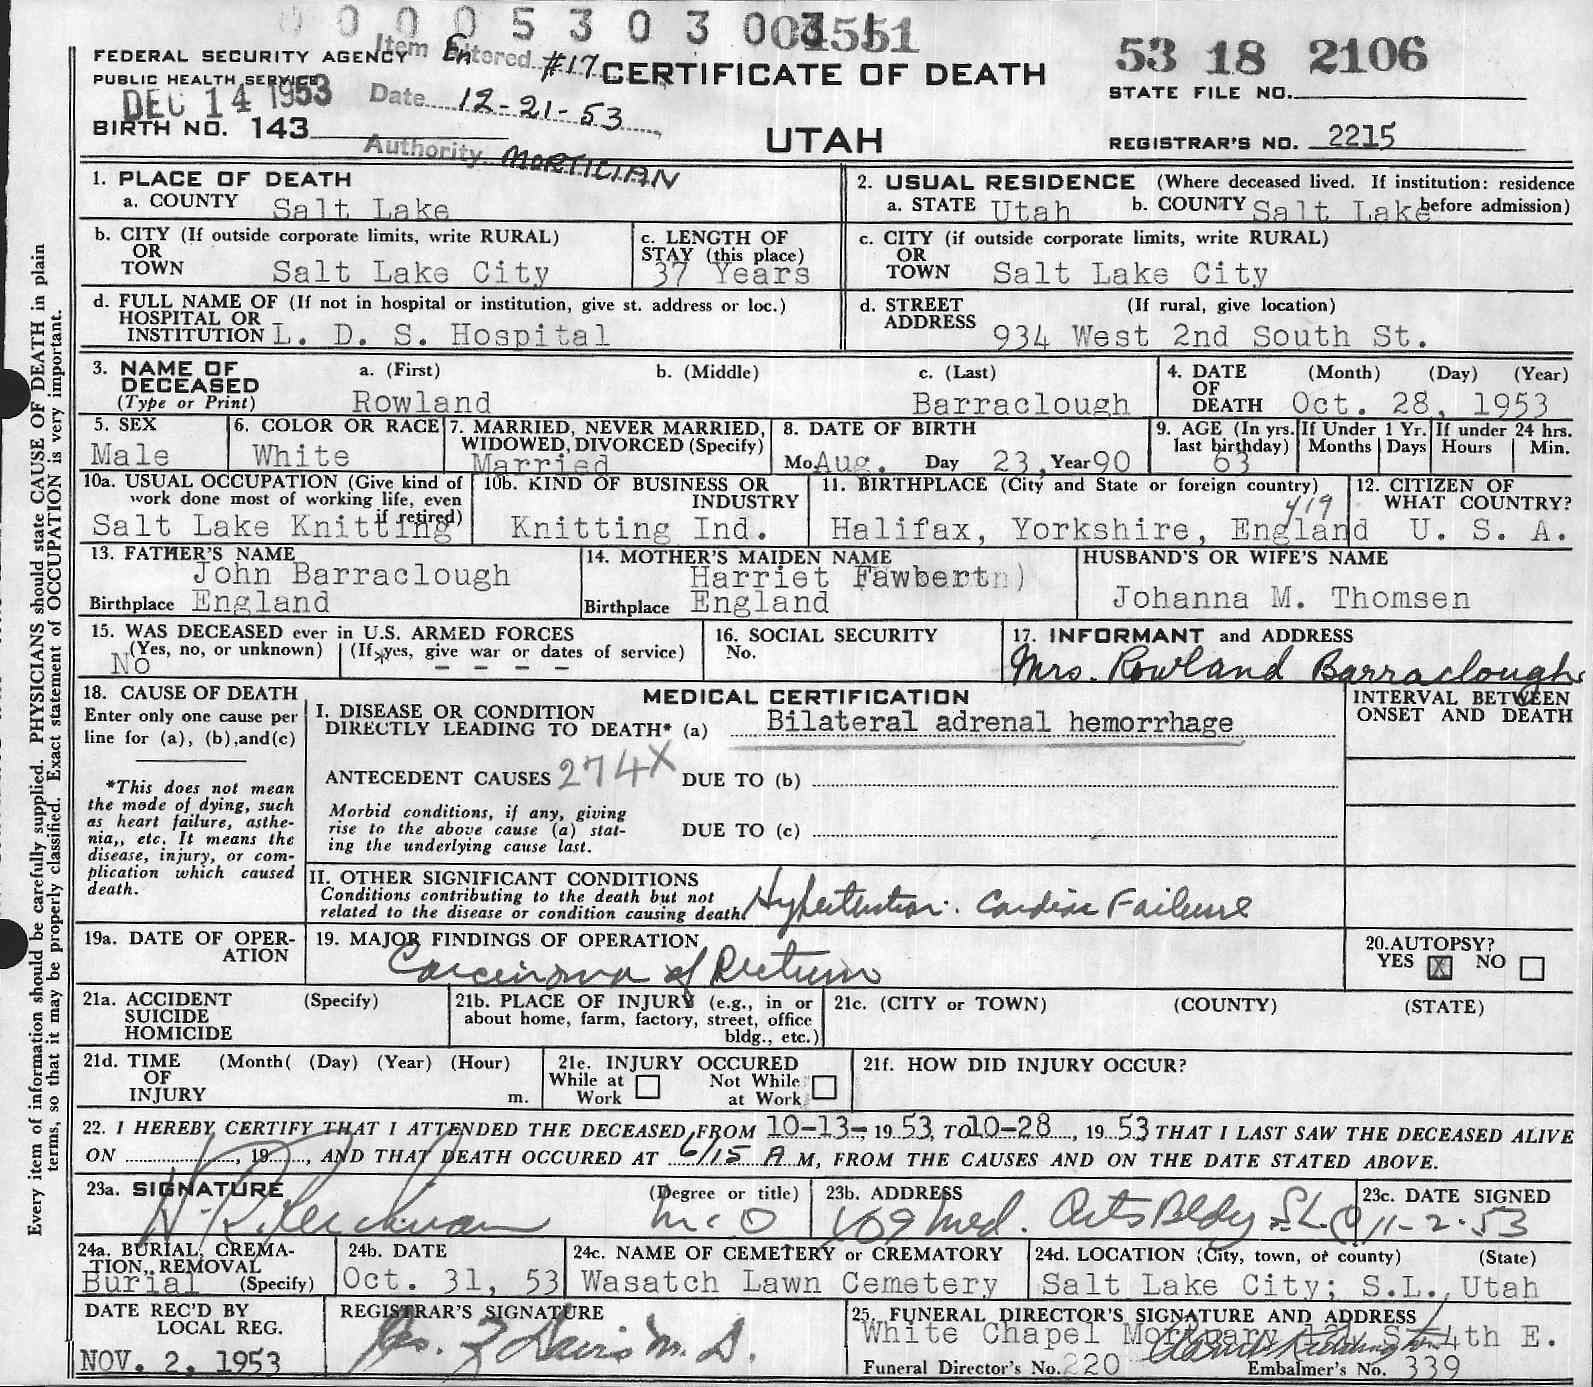 0 0 0 5 3 0 3 0
FEDERAL SECURITY AGENCY
PUBLIC HEALTH SERVICE
DEC 14 1953
BIRTH NO. 143
Item Entered #17
Date 12-21-53
Authority MORTICIAN
CERTIFICATE OF DEATH
UTAH
53 18 2106
STATE FILE NO.
REGISTRAR'S NO. 2215
1. PLACE OF DEATH
a. COUNTY Salt Lake
2. USUAL RESIDENCE (Where deceased lived. If institution: residence before admission)
a. STATE Utah b. COUNTY Salt Lake
b. CITY (If outside corporate limits, write RURAL)
OR
TOWN Salt Lake City
c. LENGTH OF
STAY (this place)
37 Years
c. CITY (if outside corporate limits, write RURAL)
OR
TOWN Salt Lake City
d. FULL NAME OF (If not in hospital or institution, give st. address or loc.)
HOSPITAL OR
INSTITUTION L. D. S. Hospital
d. STREET (If rural, give location)
ADDRESS 934 West 2nd South St.
3. NAME OF DECEASED
(Type or Print)
a. (First) b. (Middle) c. (Last)
Rowland Barraclough
4. DATE OF DEATH (Month) (Day) (Year)
Oct. 28, 1953
5. SEX
Male
6. COLOR OR RACE
White
7. MARRIED, NEVER MARRIED,
WIDOWED, DIVORCED (Specify)
Married
8. DATE OF BIRTH
Mo. Aug. Day 23, Year 90
9. AGE (In yrs. last birthday)
63
If Under 1 Yr.
Months Days
If under 24 hrs.
Hours Min.
10a. USUAL OCCUPATION (Give kind of
work done most of working life, even
if retired)
Salt Lake Knitting
10b. KIND OF BUSINESS OR
INDUSTRY
Knitting Ind.
11. BIRTHPLACE (City and State or foreign country)
419
Halifax, Yorkshire, England
12. CITIZEN OF
WHAT COUNTRY?
U. S. A.
13. FATHER'S NAME
John Barraclough
Birthplace England
14. MOTHER'S MAIDEN NAME
Harriet Fawbert
Birthplace England
HUSBAND'S OR WIFE'S NAME
Johanna M. Thomsen
15. WAS DECEASED ever in U.S. ARMED FORCES
(Yes, no, or unknown) (If yes, give war or dates of service)
No - - - -
16. SOCIAL SECURITY
No.
17. INFORMANT and ADDRESS
Mrs. Rowland Barraclough
18. CAUSE OF DEATH
Enter only one cause per
line for (a), (b),and(c)
*This does not mean
the mode of dying, such
as heart failure, asthe-
nia,, etc. It means the
disease, injury, or com-
plication which caused
death.
MEDICAL CERTIFICATION
I. DISEASE OR CONDITION
DIRECTLY LEADING TO DEATH* (a) Bilateral adrenal hemorrhage
ANTECEDENT CAUSES 274X DUE TO (b)
Morbid conditions, if any, giving
rise to the above cause (a) stat-
ing the underlying cause last.
DUE TO (c)
INTERVAL BETWEEN
ONSET AND DEATH
II. OTHER SIGNIFICANT CONDITIONS
Conditions contributing to the death but not
related to the disease or condition causing death.
Hypertention. Cardiac Failure
19a. DATE OF OPER-
ATION
19. MAJOR FINDINGS OF OPERATION
Carcinoma of Rectum
20.AUTOPSY?
YES X NO
21a. ACCIDENT (Specify)
SUICIDE
HOMICIDE
21b. PLACE OF INJURY (e.g., in or
about home, farm, factory, street, office
bldg., etc.)
21c. (CITY or TOWN) (COUNTY) (STATE)
21d. TIME (Month( (Day) (Year) (Hour)
OF
INJURY m.
21e. INJURY OCCURED
While at Work Not While at Work
21f. HOW DID INJURY OCCUR?
22. I HEREBY CERTIFY THAT I ATTENDED THE DECEASED FROM 10-13-, 19 53, TO 10-28, 19 53 THAT I LAST SAW THE DECEASED ALIVE
ON , 19 , AND THAT DEATH OCCURED AT 6/15 A M, FROM THE CAUSES AND ON THE DATE STATED ABOVE.
23a. SIGNATURE (Degree or title)
23b. ADDRESS
109 Med. Arts Bldg S.L.C
23c. DATE SIGNED
11-2-53
24a. BURIAL, CREMA-
TION, REMOVAL
Burial (Specify)
24b. DATE
Oct. 31, 53
24c. NAME OF CEMETERY or CREMATORY
Wasatch Lawn Cemetery
24d. LOCATION (City, town, or county) (State)
Salt Lake City; S.L., Utah
DATE REC'D BY
LOCAL REG.
NOV. 2, 1953
REGISTRAR'S SIGNATURE
Davis M. D.
25. FUNERAL DIRECTOR'S SIGNATURE AND ADDRESS
White Chapel Mortuary 4th E.
Funeral Director's No. 220 Embalmer's No. 339
Every item of information should be carefully supplied. PHYSICIANS should state CAUSE OF DEATH in plain
terms, so that it may be properly classified. Exact statement of OCCUPATION is very important.